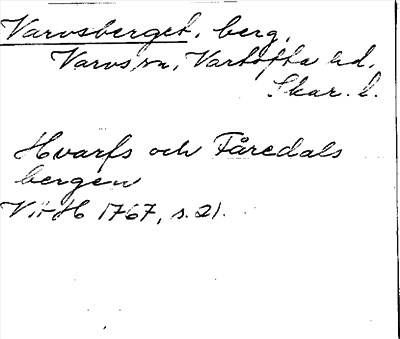 Varvsberget, berg,
Varvs sn, Vartofta hd,
Skar. l.
Hvarfs och Fåredals
bergen
VittH 1767, s. 21.